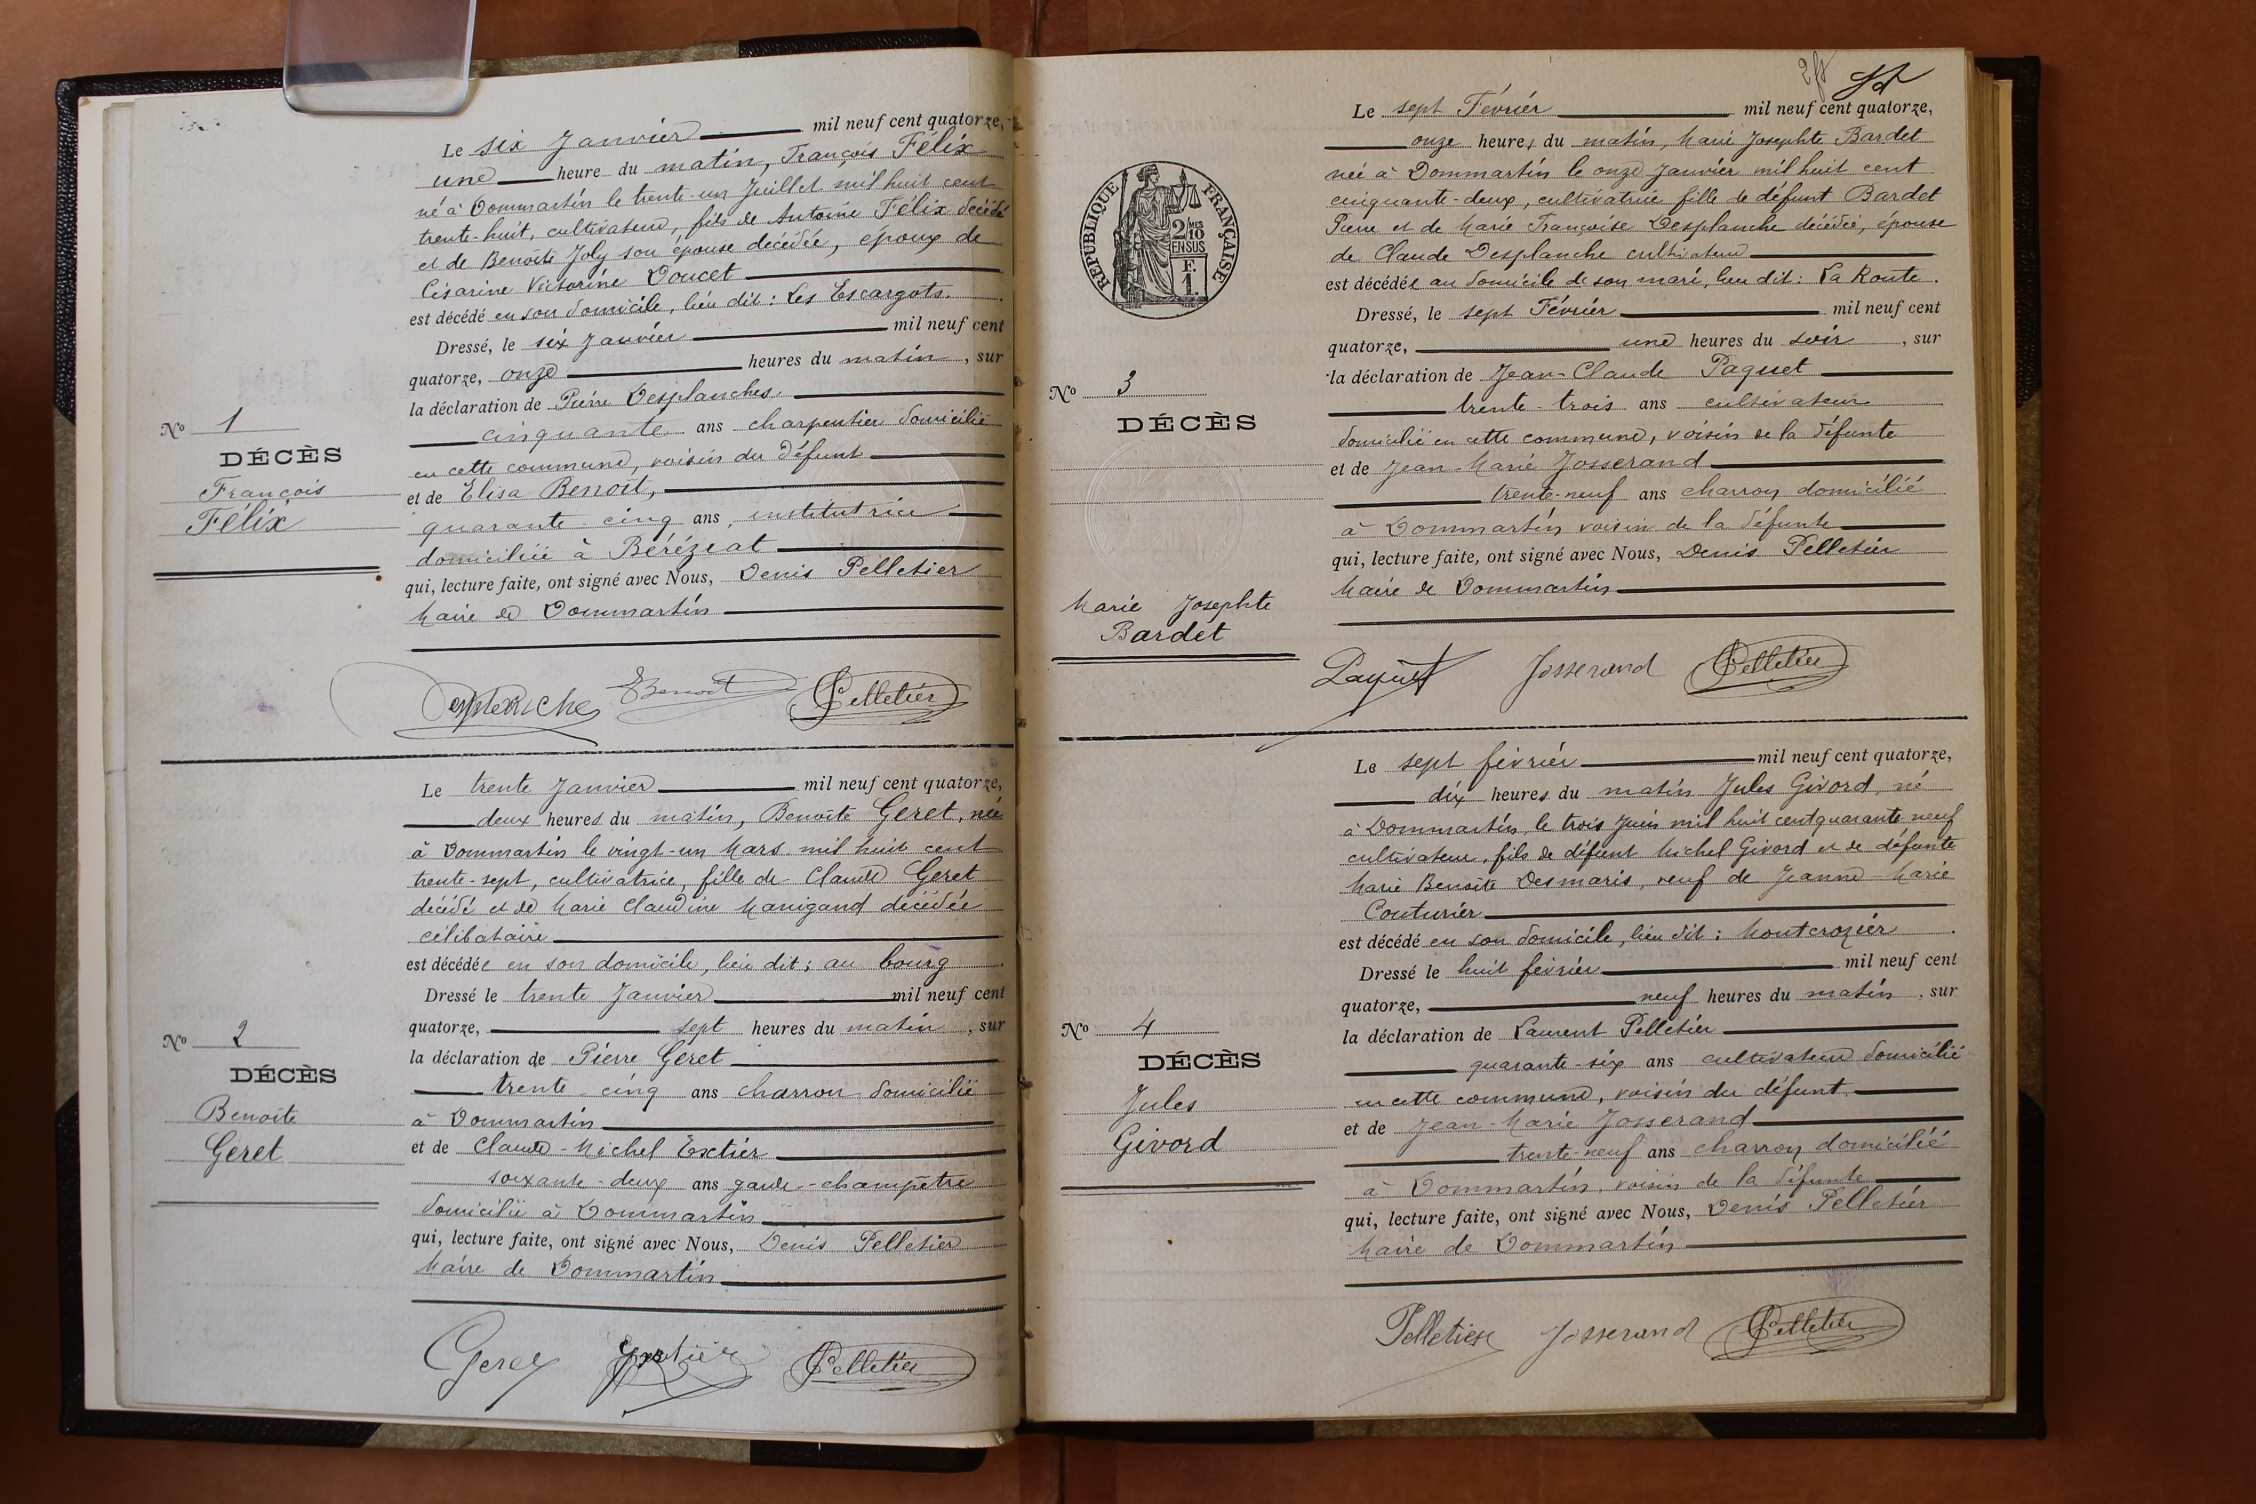 Le six Janvier mil neuf cent quatorze,
une heure du matin, François Félix
né à Dommartin le trente-un Juillet mil huit cent
trente-huit, cultivateur, fils de Antoine Félix décédé
et de Benoîte Joly son épouse décédée, époux de
Césarine Victorine Doucet
est décédé en son domicile, lieu dit : Les Escargots.
Dressé, le six Janvier mil neuf cent
quatorze, onze heures du matin, sur
la déclaration de Pierre Desplanches.
cinquante ans charpentier domicilié
en cette commune, voisin du défunt
et de Elisa Benoit,
quarante-cinq ans, institutrice
domiciliée à Bérézeat
qui, lecture faite, ont signé avec Nous, Denis Pelletier
Maire de Dommartin
No 1
DÉCÈS
François
Félix
EBenoit Pelletier
Le trente Janvier mil neuf cent quatorze,
deux heures du matin, Benoîte Geret, née
à Dommartin le vingt-un Mars mil huit cent
trente-sept, cultivatrice, fille de Claude Geret
décédé et de Marie Claudine Manigand décédée
célibataire
est décédée en son domicile, lieu dit ; au bourg
Dressé le trente Janvier mil neuf cent
quatorze, sept heures du matin, sur
la déclaration de Pierre Geret
trente-cinq ans charron domicilié
à Dommartin
et de Claude-Michel Extier
soixante-deux ans garde-champêtre
domicilié à Dommartin
qui, lecture faite, ont signé avec Nous, Denis Pelletier
Maire de Dommartin
No 2
DÉCÈS
Benoîte
Geret
Geret Extier Pelletier
Le sept Février mil neuf cent quatorze,
onze heures du matin, Marie Josephte Bardet
née à Dommartin le onze Janvier mil huit cent
cinquante-deux, cultivatrice fille de défunt Bardet
Pierre et de Marie Françoise Desplanche décédée, épouse
de Claude Desplanche cultivateur
est décédée au domicile de son mari, lieu dit : La Route.
Dressé, le sept Février mil neuf cent
quatorze, une heures du soir, sur
la déclaration de Jean-Claude Paquet
trente-trois ans cultivateur
domicilié en cette commune, voisin de la défunte
et de Jean-Marie Josserand
trente-neuf ans charron domicilié
à Dommartin voisin de la défunte
qui, lecture faite, ont signé avec Nous, Denis Pelletier
Maire de Dommartin
RÉPUBLIQUE FRANÇAISE
2 MES
2/10
EN SUS
F.
1.
No 3
DÉCÈS
Marie Josephte
Bardet
Paquet Josserand Pelletier
Le sept février mil neuf cent quatorze,
dix heures du matin Jules Givord, né
à Dommartin, le trois Juin mil huit cent quarante-neuf
cultivateur, fils de défunt Michel Givord et de défunte
Marie Benoîte Desmaris, veuf de Jeanne-Marie
Couturier
est décédé en son domicile, lieu dit : Montcrozier.
Dressé le huit février mil neuf cent
quatorze, neuf heures du matin, sur
la déclaration de Laurent Pelletier
quarante-six ans cultivateur domicilié
en cette commune, voisin du défunt,
et de Jean-Marie Josserand
trente-neuf ans charron domicilié
à Dommartin, voisin de la défunte
qui, lecture faite, ont signé avec Nous, Denis Pelletier
Maire de Dommartin
No 4
DÉCÈS
Jules
Givord
Pelletier Josserand Pelletier